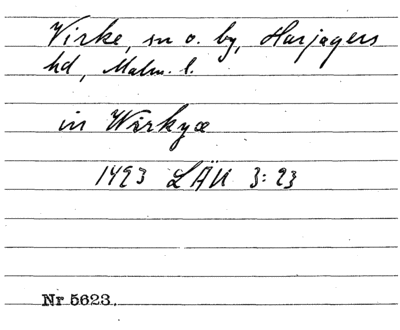 Virke, sn o. by, Harjagers
hd, Malm. l.
in Wirkyæ
1493 LÄU 3:93
Nr 5623.